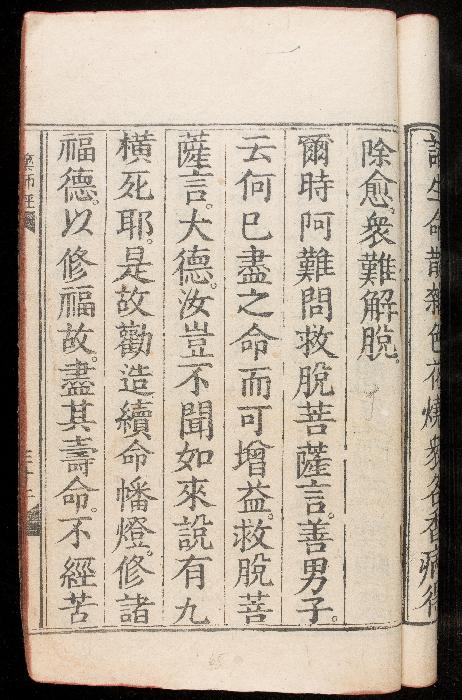 諸生命散雜色花燒衆名香病得
除愈。衆難解脫。
爾時阿難問救脫菩薩言。善男子。
云何已盡之命而可增益。救脫菩
薩言。大德。汝豈不聞如來說有九
橫死耶。是故勸造續命幡燈。修諸
福德。以修福故。盡其壽命。不經苦
藥師經